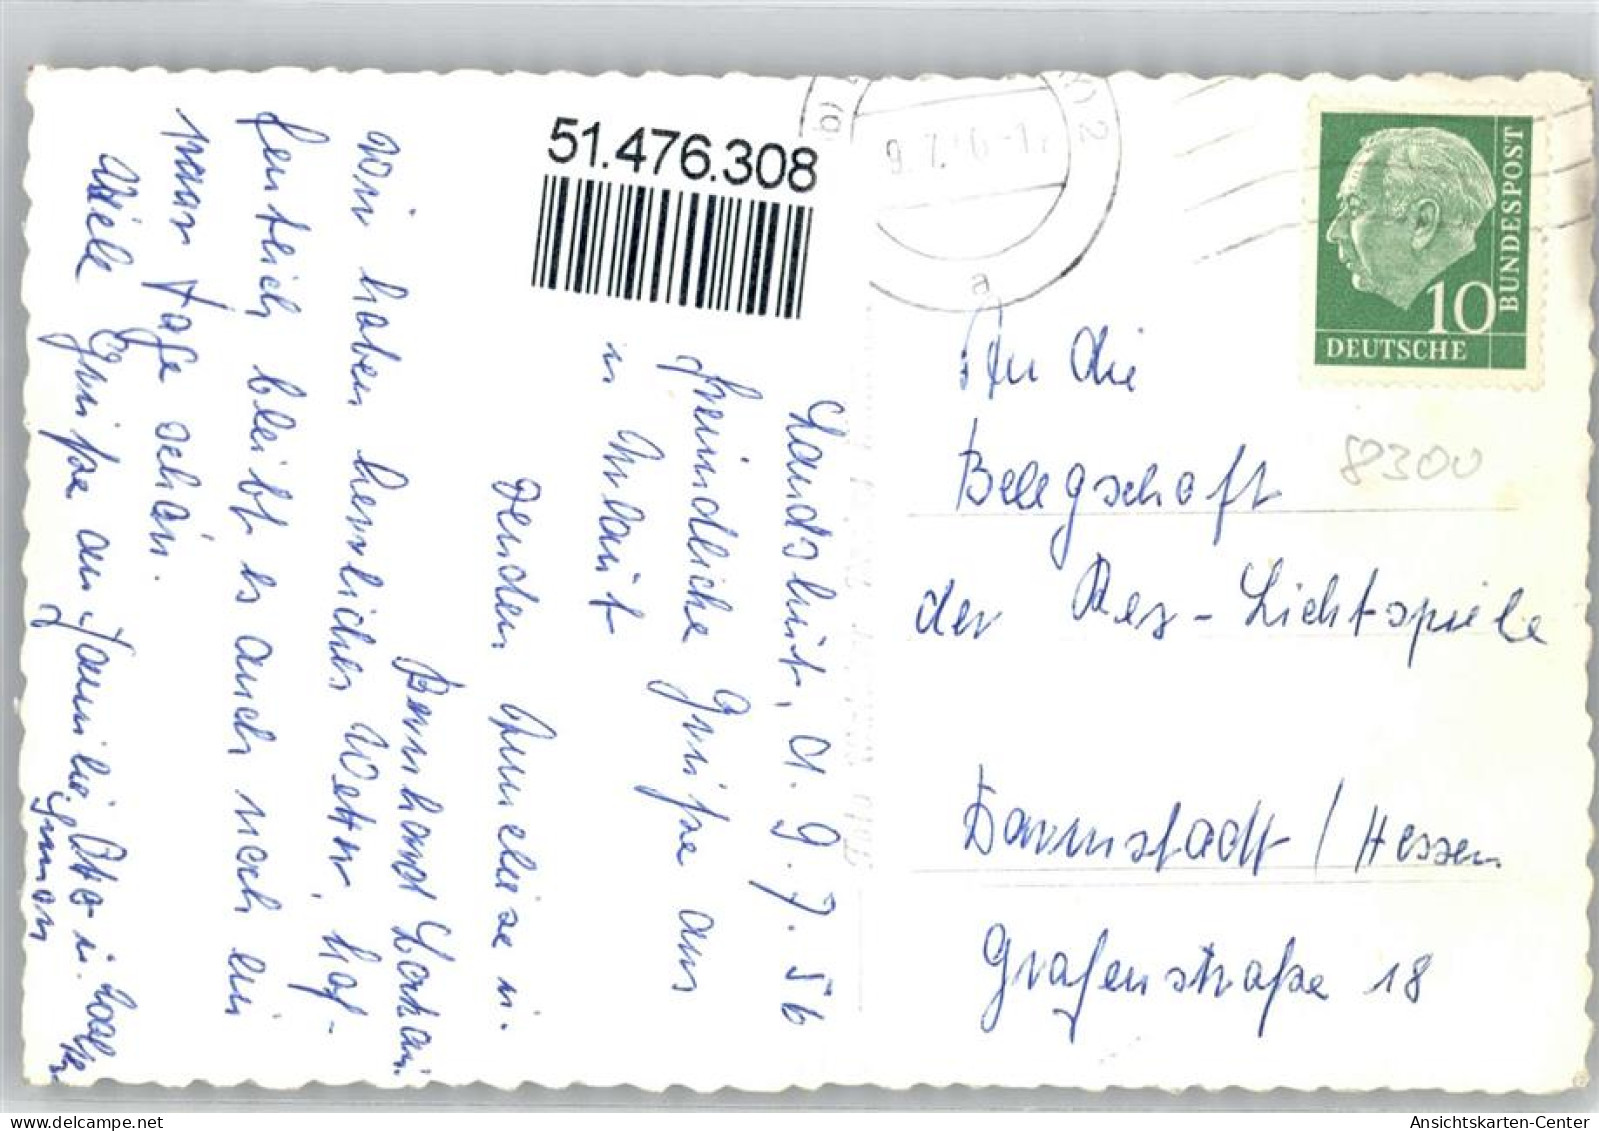 51.476.308
9.7.
a
10
DEUTSCHE
BUNDESPOST
8300
Landshut, d. 9. 7. 56
Freundliche Grüße aus
in Urlaub
senden Anneliese u.
Bernhard
Wir haben herrliches Wetter, hof-
fentlich bleibt es auch noch ein
paar Tage schön.
Viele Grüße an Familie Otto u.
An die
Belegschaft
der Rex-Lichtspiele
Darmstadt / Hessen
Grafenstraße 18
Ansichtskarten-Center